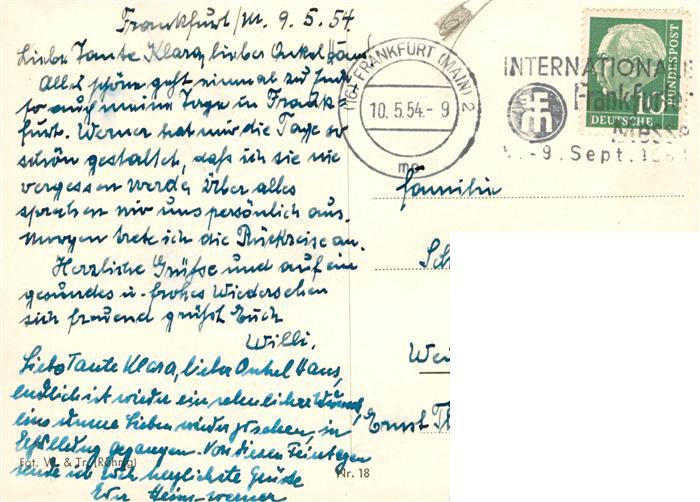 Frankfurt/M. 9.5.54
Liebe Tante Klara, lieber Onkel Hans!
Alles schöne geht einmal zu Ende
so auch meine Tage in Frank-
furt. Werner hat mir die Tage so
schön gestaltet, daß ich sie nie
vergessen werde. Über alles
sprechen wir uns persönlich aus.
Morgen trete ich die Rückreise an.
Herzliche Grüße und auf ein
gesundes u. frohes Wiedersehen
sich freuend grüßt Euch
Willi.
Liebe Tante Klara, lieber Onkel Hans,
endlich ist wieder ein sehnlicher Wunsch,
eins unserer Lieben wiederzusehen, in
Erfüllung gegangen. Von diesen Feiertagen
sende ich Euch herzlichste Grüße
Euer Heinz-Werner
Fot. W. & Tr. (Röhrig)
Nr. 18
(16) FRANKFURT (MAIN) 2
10.5.54.-9
mp
INTERNATIONALE
Frankfurter
MESSE
-9. Sept. 195
DEUTSCHE BUNDESPOST
10
Familie
Sch
Wei
Ernst Th